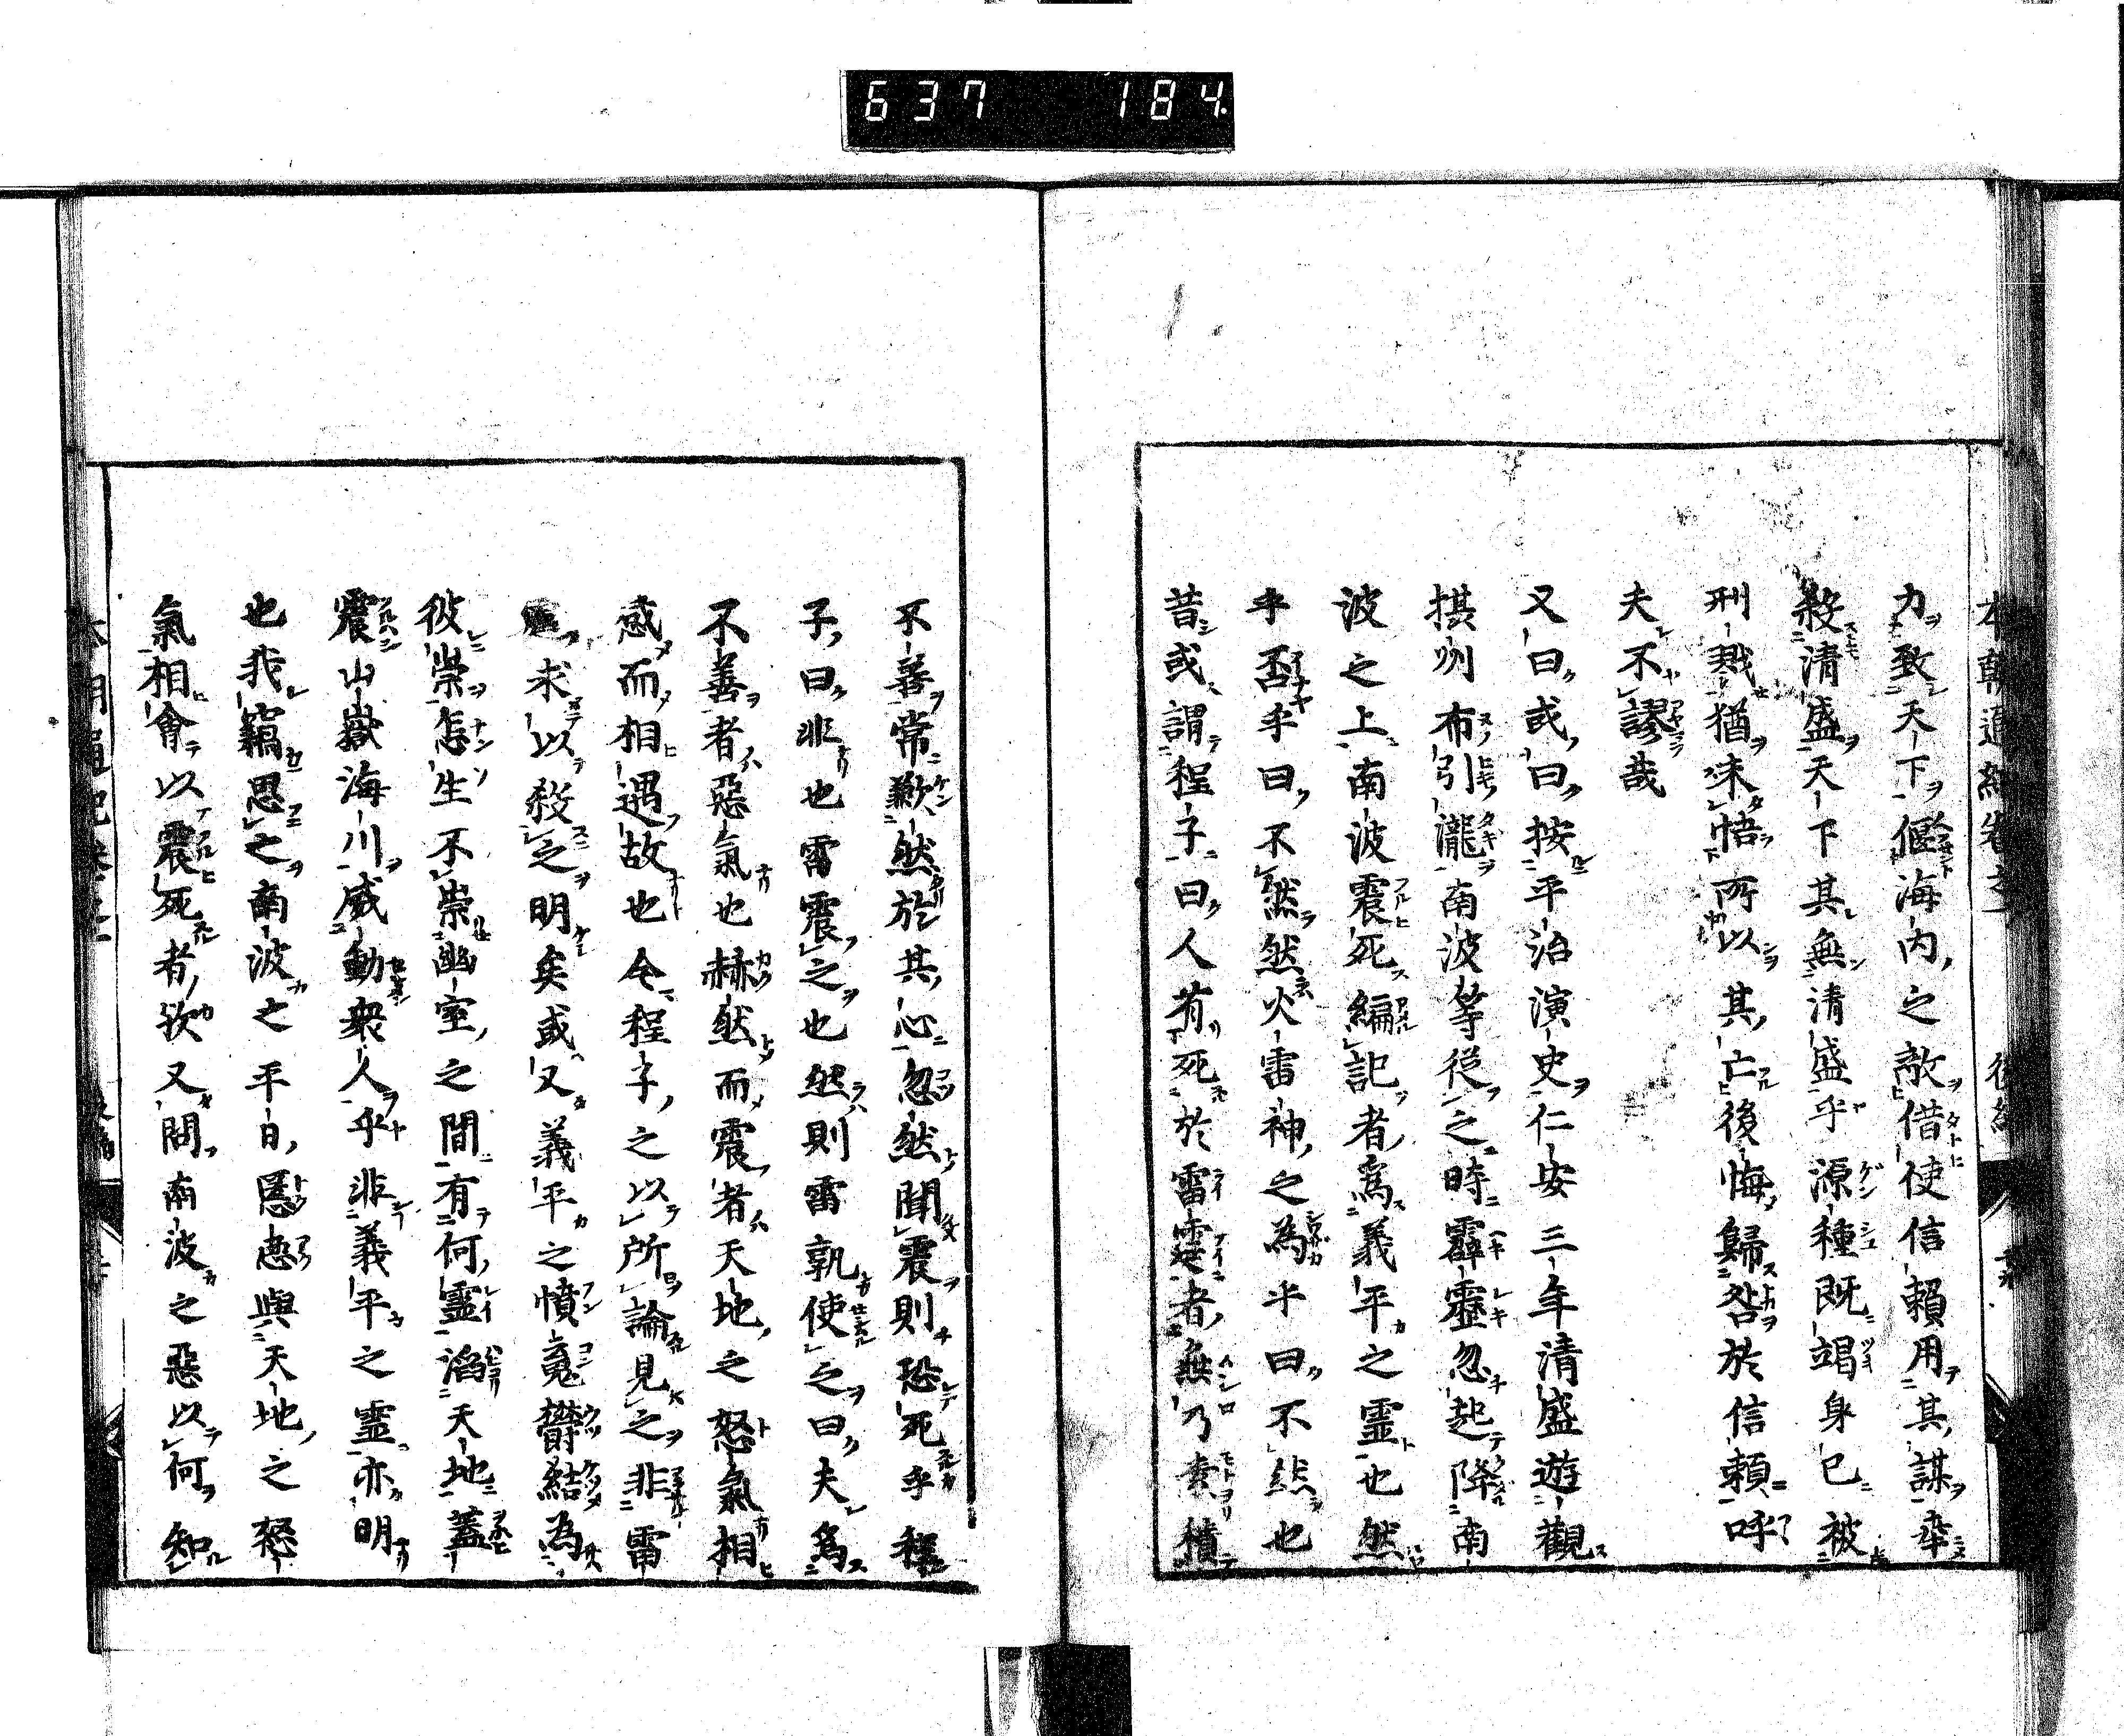 637 184
力致天下偃海内之敵借使信賴用其謀卒
殺清盛天下其無清盛乎源種既竭身已被
刑戮猶未悟所以其亡後悔歸咎於信賴呼
夫不謬哉
又曰或曰按平治演史仁安三年清盛遊觀
摂州布引瀧南波等從之時霹靂忽起降南
波之上南波震死編記者爲義平之霊也然
乎否乎曰不然然火雷神之為乎曰不然也
昔或謂程子曰人有死於雷霆者無乃素積
不善常歉然於其心忽然聞震則恐死乎程
子曰非也雷震之也然則雷孰使之曰夫爲
不善者惡氣也赫然而震者天地之怒氣相
感而相遇故也今程子之以所論見之非雷
求以殺之明矣或又義平之憤冤欝結為
彼祟怎生不祟幽室之間有何霊滔天地蓋
震山嶽海川威動衆人乎非義平之霊亦明
也我竊思之南波之平日慝與天地之怒
氣相會以震死者欤又問南波之惡以何知